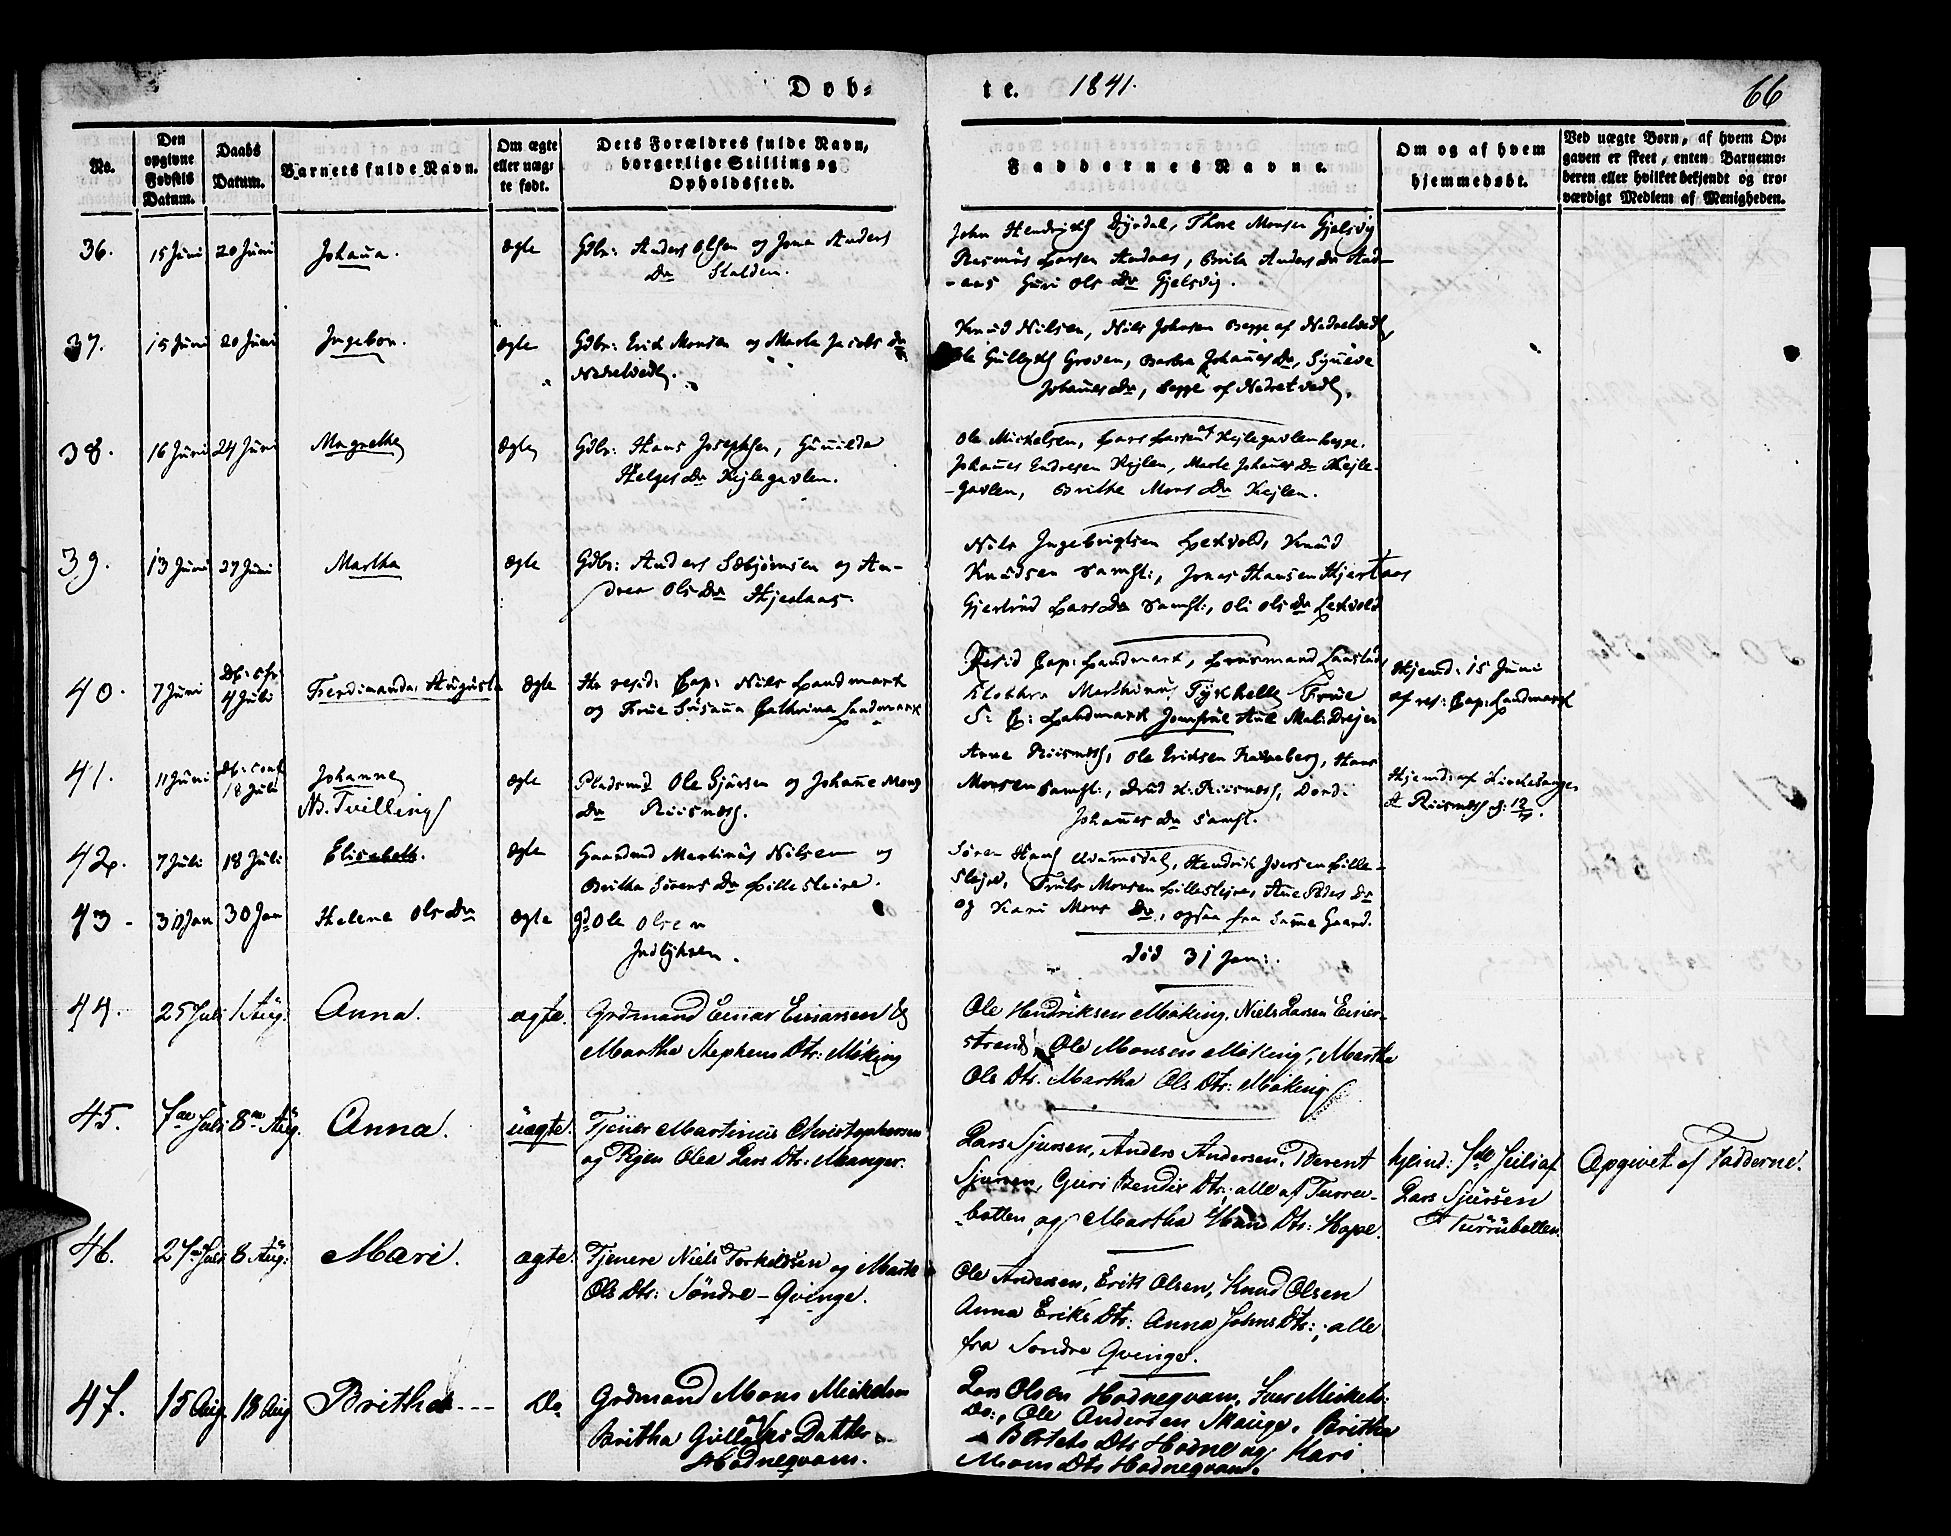 Døb-
te. 1841.
66
No.
Den opgivne Fødsels Datum.
Daabs Datum.
Barnets fulde Navn.
Om ægte eller uægte født.
Dets Forældres fulde Navn, borgerlige Stilling og Opholdssted.
Faddernes Navne.
Om og af hvem hjemmedøbt.
Ved uægte Børn, af hvem Opgaven er skeet, enten Barnemoderen eller hvilket bekjendt og troværdigt Medlem af Menigheden.
36. 15 Juni 20 Juni Johanna. ægte
Gdbr: Anders Olsen og Anders
Dr Stalden.
John Dyrdal, Thore Monsen Gjelsvig
Rasmus Larsen Andaas, Brita Anders Dr And-
-aas Guri Ols Dr Gjelsvig.
37. 15 Juni 20 Juni Ingebor. ægte
Gdbr: Erik Monsen og Marte Jacobs Dr
Nedrelvedt.
Knud Nilsen, Nils Johnsen Begge af
Ole Groven, Johannes Dr, Synneve
Johannes Dr, Begge af
38. 16 Juni 24 Juni Magrethe ægte
Gdbr: Hans Josephsen, Gunnilda
Helges Dr Kejlegavlen.
Ole Mickelsen, Lars Larsen af Kejlegavlen begge.
Johannes Endresen Kejlen, Marte Johannes Dr Kejle-
-gavlen, Brithe Mons Dr Kejlen.
39. 13 Juni 27 Juni Martha ægte
Gdbr: Anders og An-
drea Ols Dr Hjertaas.
Nils Ingebrigtsen Lekvold, Knud
Knudsen samst:, Jonas Hansen Hjertaas
Gjertrud Lars Dr samst:, Oli Ols Dr Lekvold
40. 7 Juni 4 Juli Ferdinanda Augusta ægte
Hr resid: Cap: Nils Landmark
og Frue Susanna Cathrina Landmark
Resid Cap: Landmark,
Klokkra Marthinus Frue
S: C: Landmark Jomfrue Ane Mal: Drejer
Hjemd: 15 Juni
af res: Cap: Landmark
41. 11 Juni 18 Juli Johanne
NB. Tvilling ægte
Pladsmd Ole Sjursen og Johanne Mons
Dr Riisnæs.
Anne Riisnæs, Ole Eriksen Hans
Monsen samst:, Riisnæs,
Johannes Dr samst.
Hjemd: af
Riisnæs d: 12/7.
42. 7 Juli 18 Juli Elisabeth. ægte
Gaardmd Martinus Nilsen og
Britha Sørens Dr Lillesteire.
Søren Hendrik Iversen Lille-
stejre, Truls Monsen Lillestejre, Ane Peders Dr
og Kari Mons Dr, ogsaa fra Samme Gaard.
43. 30 Jan 30 Jan Helene Ols Dr ægte
Ole Olsen
død 31 Jan:.
44. 25 Juli 1 Aug. Anna. ægte.
Grdmand Einar Einarsen og
Martha Stephens Dtr: Møking
Ole Hendriksen Møking, Niels Larsen Einer-
strand, Ole Monsen Møking, Martha
Ols Dtr. Martha Ols Dtr: Møking
45. 7de Juli 8de Aug. Anna. uægte.
Tjener Martinus Christophersen
og Pigen Olea Lars Dtr: Manger.
Lars Sjursen, Anders Andersen, Berent
Sjursen, Guri Bendix Dtr, alle af Turre-
-botten og Martha Dtr: Hope.
hjemd: 7de Juli af
Lars Sjursen
Turrubotten
Opgivet af Fadderne.
46. 27 Juli 8 Aug: Mari. ægte.
Tjenere Niels Torkildsen og Marth
Ols Dtr: Søndre-Qvinge.
Ole Andersen, Erik Olsen, Knud Olsen
Anna Eriks Dtr: Anna Johns Dtr:, alle
fra Søndre Qvinge.
47. 15 Aug 18 Aug Britha --- Do
Grdmand Mons Mickelsen
Britha Datter
Hodneqvam.
Lars Olsen Hodneqvam, Iver Mickels:
Do:, Ole Andersen Skauge, Britha
Bertels Dtr Hodne og Kari
Mons Dtr Hodneqvam.